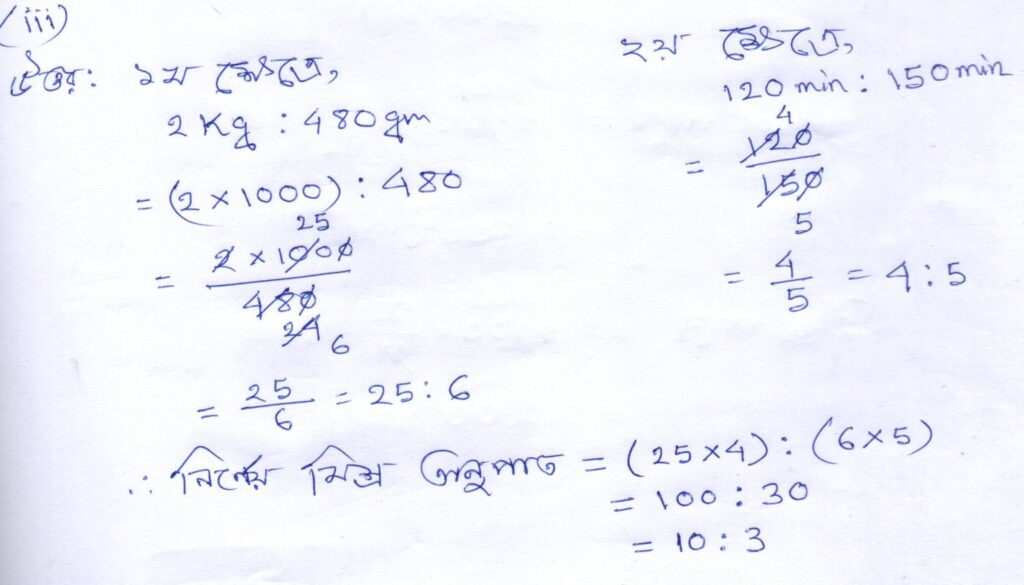 (iii)
উত্তর: ১ম ক্ষেত্রে,
2 Kg : 480 gm
= (2 × 1000) : 480
25
= 2 × 1000
480
24 6
= 25/6 = 25 : 6
২য় ক্ষেত্রে,
120 min : 150 min
4
= 120
150
5
= 4/5 = 4 : 5
∴ নির্ণেয় মিশ্র অনুপাত = (25×4) : (6×5)
= 100 : 30
= 10 : 3